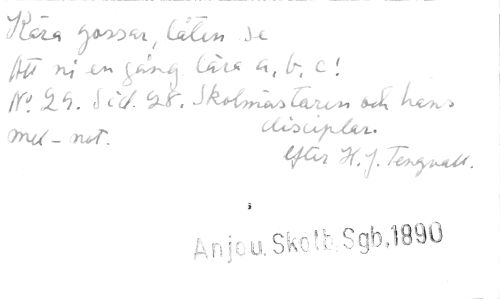 Kära gossar, låten se
Att ni en gång lära a, b, c!
No. 29. Sid. 28. Skolmästaren och hans
disciplar.
mel-not.
efter H. J. Tengvall.
Anjou. Skolb. Sgb. 1890